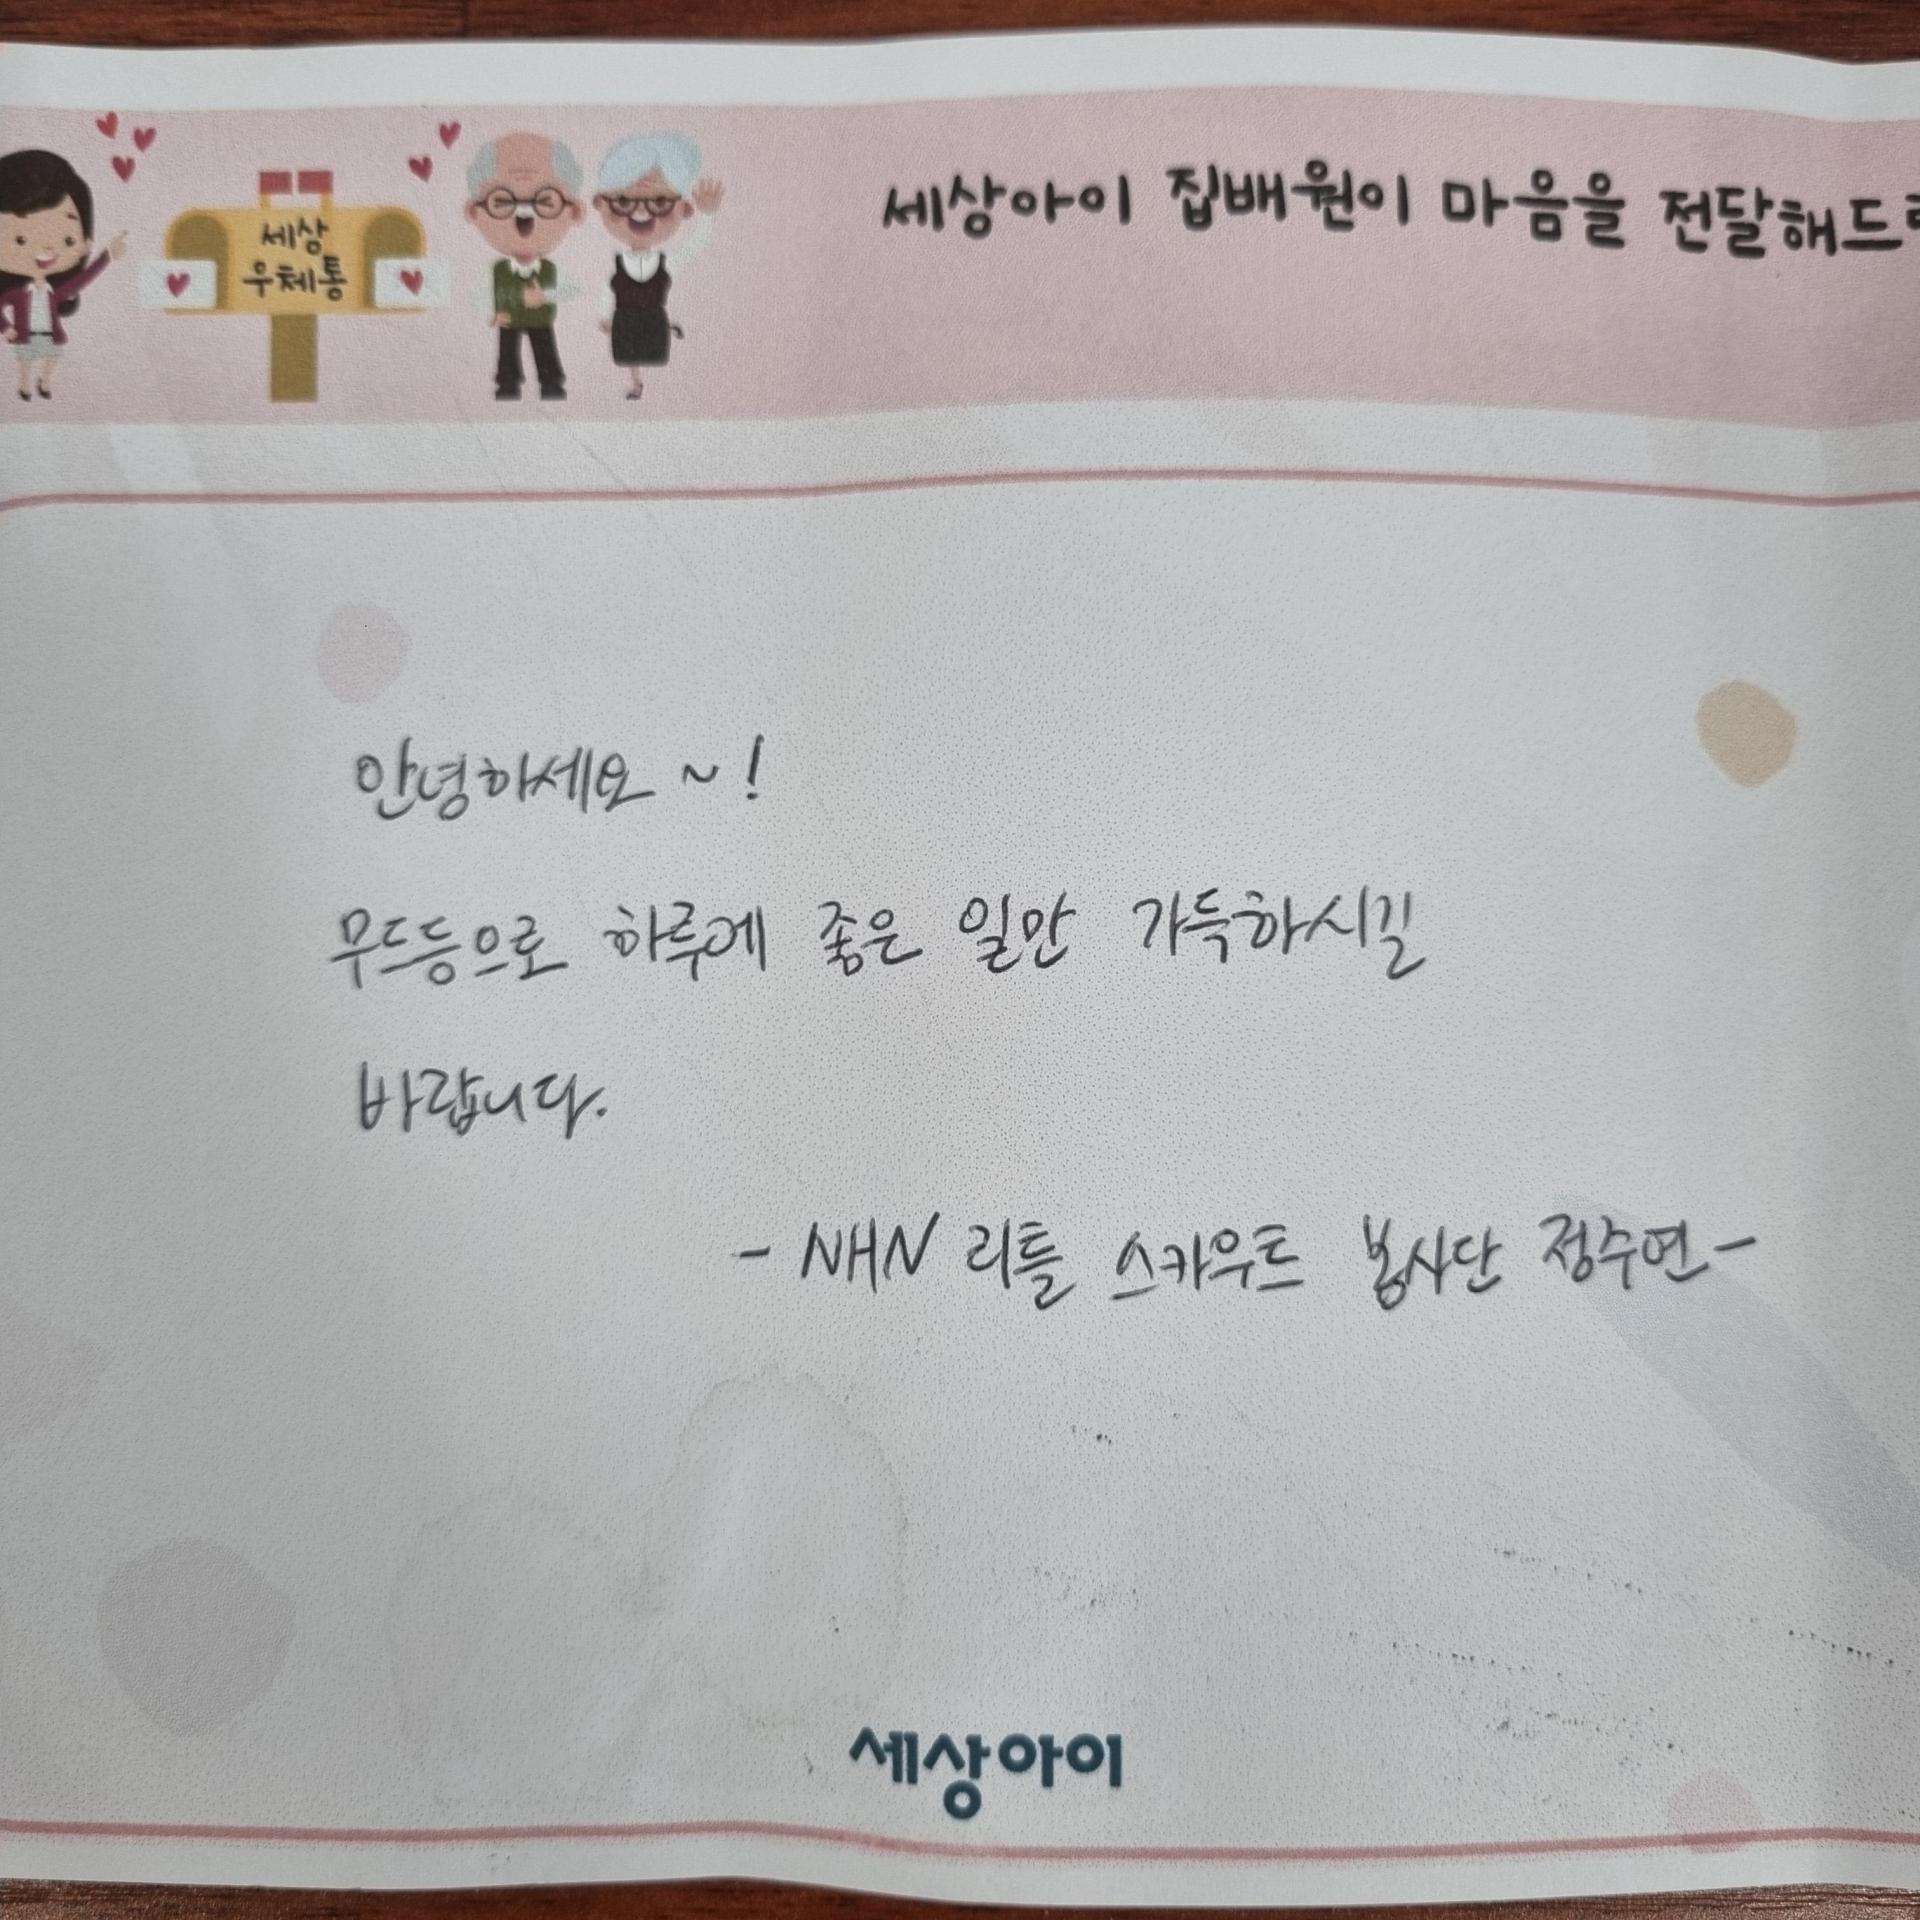 세상
우체통
세상아이 집배원이 마음을 전달해드
안녕하세요 ~!
무드등으로 하루에 좋은 일만 가득하시길
바랍니다.
- NHN 리틀 스카우트 봉사단 정수연 -
세상아이